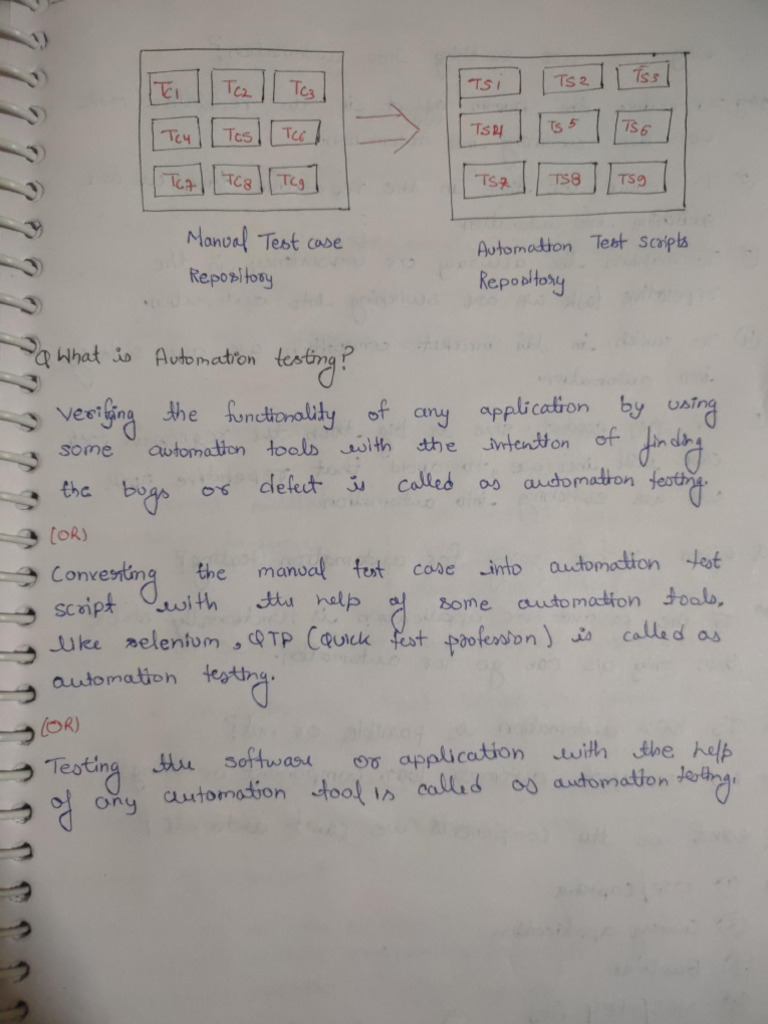 TC1 TC2 TC3
TC4 TC5 TC6
TC7 TC8 TC9
Manual Test case
Repository
TS1 TS2 TS3
TS4 TS5 TS6
TS7 TS8 TS9
Automation Test scripts
Repository
Q What is Automation testing?
Verifying the functionality of any application by using
some automation tools with the intention of finding
the bugs or defect is called as automation testing.
(OR)
Converting the manual test case into automation test
script with the help of some automation tools.
like selenium, QTP (Quick test profession) is called as
automation testing.
(OR)
Testing the software or application with the help
of any automation tool is called as automation testing.